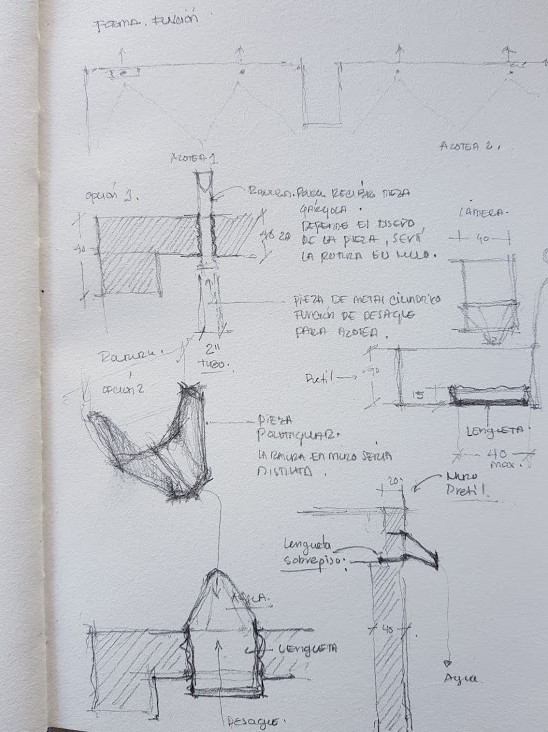 FORMA. FUNCIÓN
AZOTEA 1
AZOTEA 2.
OPCIÓN 1.
RANURA PARA RECIBIR PIEZA
GÁRGOLA.
DEPENDE EL DISEÑO
DE LA PIEZA, SERÁ
LA ROTURA EN MURO.
LÁMINA.
40
40
20
PIEZA DE METAL CILINDRICO
FUNCIÓN DE DESAGUE
PARA AZOTEA.
2"
TUBO.
Ranura.
OPCIÓN 2
Pretil
90
15
LENGUETA
40
max.
PIEZA
LA RANURA EN MURO SERÍA
DISTINTA.
20
Muro
Pretil.
Lengueta
sobrepiso.
40
LENGUETA
Agua
DESAGUE.